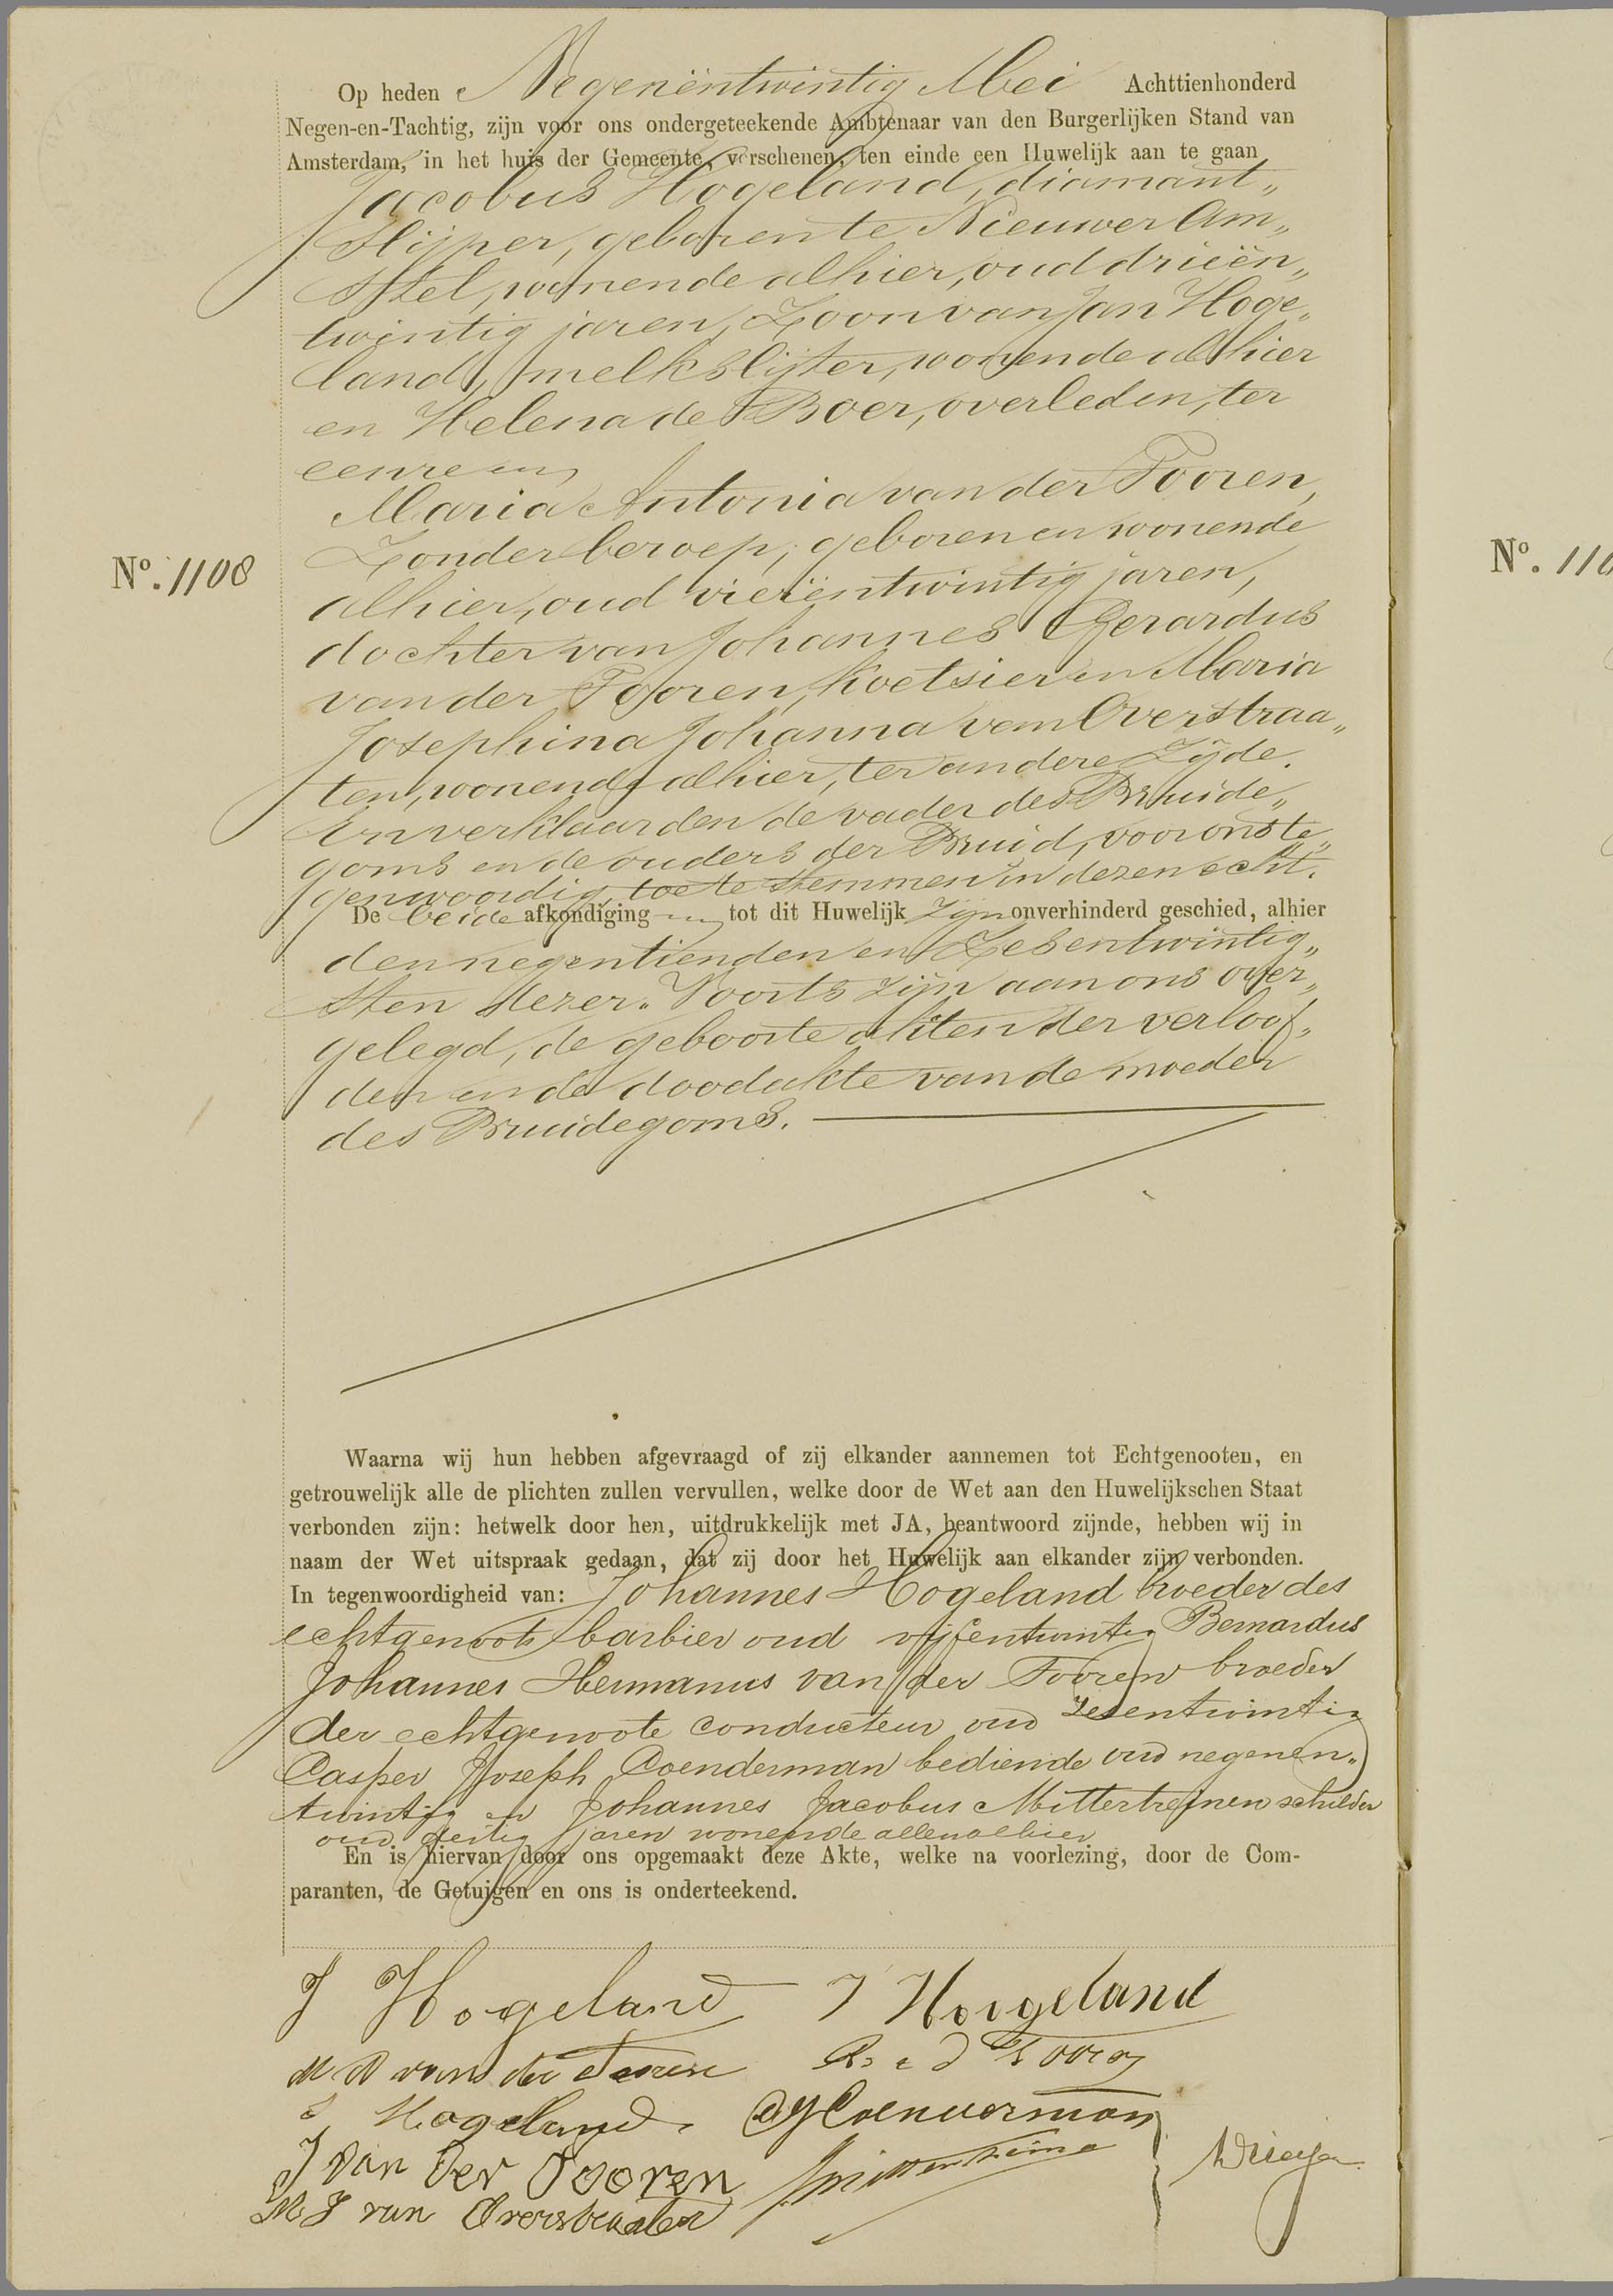 Op heden Negenëntwintig Mei Achttienhonderd
Negen-en-Tachtig, zijn voor ons ondergeteekende Ambtenaar van den Burgerlijken Stand van
Amsterdam, in het huis der Gemeente, verschenen, ten einde een Huwelijk aan te gaan
Jacobus Hogeland, diamant„
slijper, geboren te Nieuwer Am„
stel, wonende alhier, oud drieën„
twintig jaren, Zoon van Jan Hoge„
land, melkslijter, wonende alhier
en Helena de Boer, overleden, ter
eenre en
Maria Antonia van der Tooren,
Zonder beroep, geboren en wonende
Nº. 1108
alhier, oud vierëntwintig jaren,
dochter van Johannes Gerardus
van der Tooren, koetsier en Maria
Josephina Johanna van Overstraa„
ten, wonende alhier, ter andere Zijde.
En verklaarden de vader des Bruide„
goms en de ouders der Bruid, voor ons te„
genwoordig, toe te stemmen in dezen echt.
De beide afkondiging en tot dit Huwelijk zijn onverhinderd geschied, alhier
den negentienden en Zesentwintig„
sten dezer. Voorts zijn aan ons over„
gelegd, de geboorte akten der verloof„
den en de doodakte van de moeder
des Bruidegoms.
Waarna wij hun hebben afgevraagd of zij elkander aannemen tot Echtgenooten, en
getrouwelijk alle de plichten zullen vervullen, welke door de Wet aan den Huwelijkschen Staat
verbonden zijn: hetwelk door hen, uitdrukkelijk met JA, beantwoord zijnde, hebben wij in
naam der Wet uitspraak gedaan, dat zij door het Huwelijk aan elkander zijn verbonden.
In tegenwoordigheid van: Johannes Hogeland broeder des
echtgenoots barbier oud vijfentwintig Bernardus
Johannes Hermanus van der Tooren broeder
der echtgenoote conducteur oud zesentwintig
Casper Joseph Coenderman bediende oud negenen„
twintig en Johannes Jacobus Mittertreinen schilder
oud dertig jaren wonende allen alhier
En is hiervan door ons opgemaakt deze Akte, welke na voorlezing, door de Com-
paranten, de Getuigen en ons is onderteekend.
J Hogeland J Hoogeland
M A van der Tooren
J Hogeland. C J Coenderman
J van der Tooren
M J van Overstraaten
Nº. 110